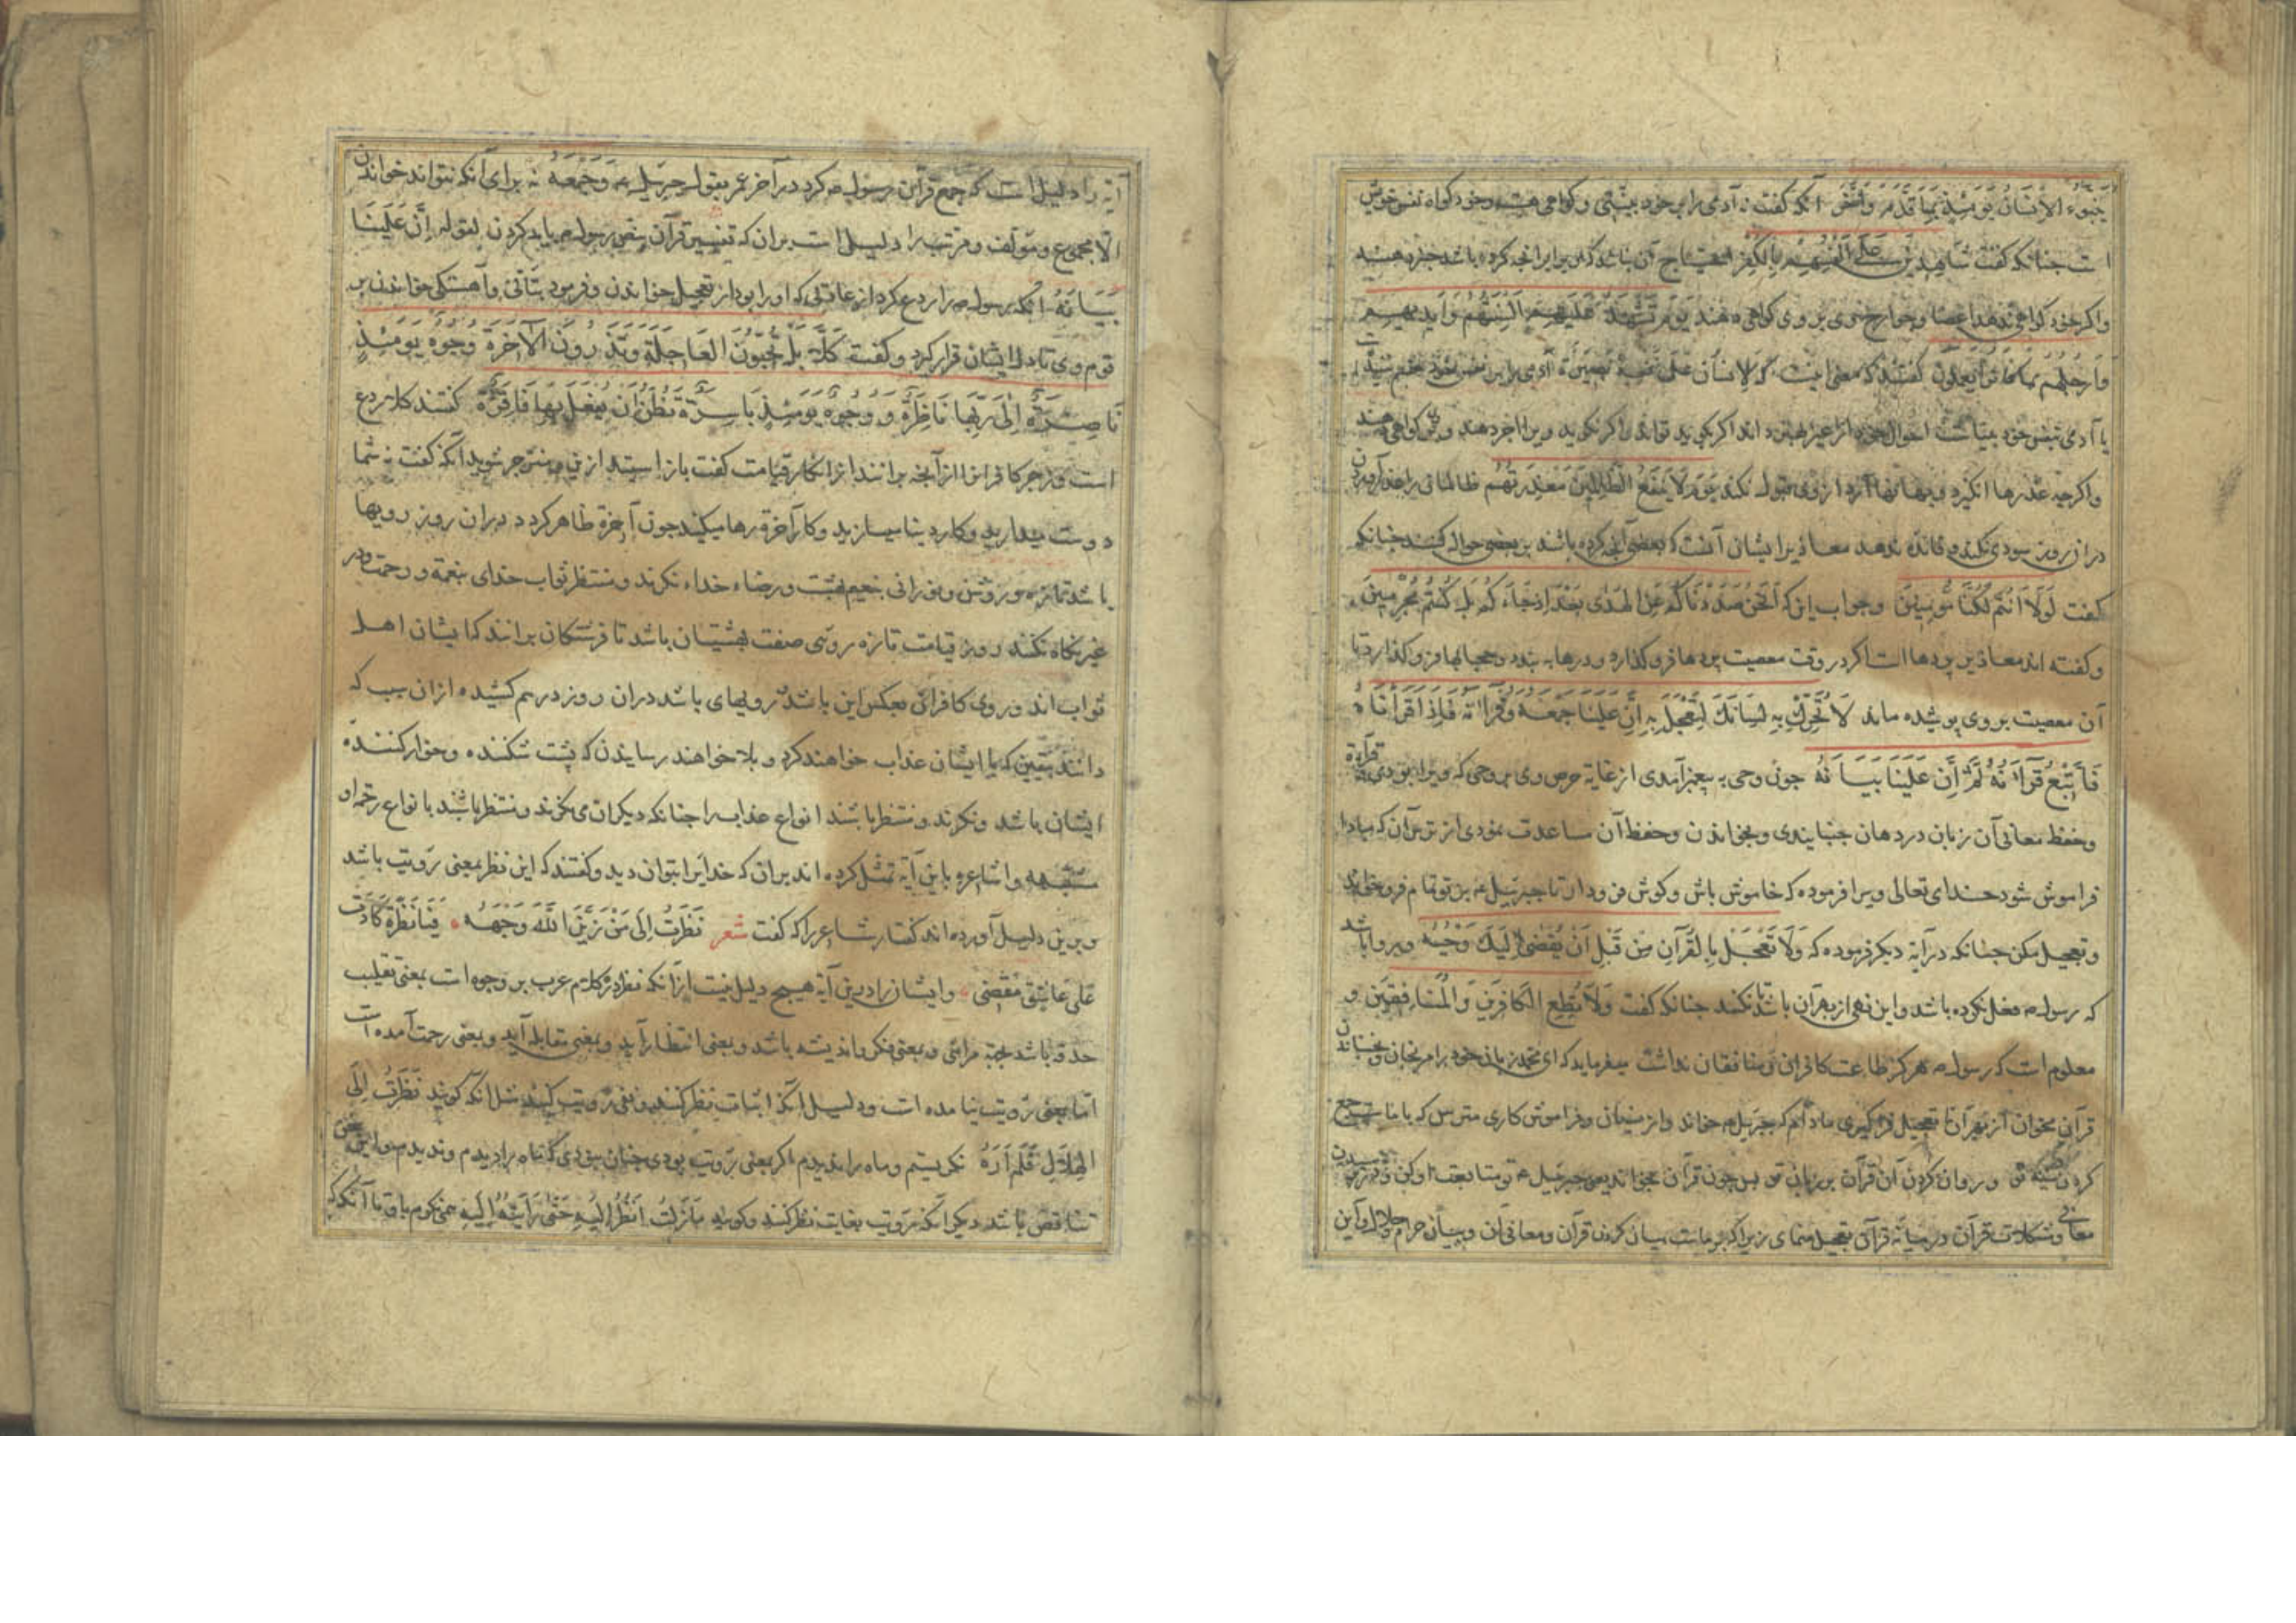 ینبوء الانسان یومئذ بما قدم واخر آنکه گفت نه آدمی را بر خود بینتی و گواهی هست و خود گواه نفس خویش
است چنانکه گفت شاهدین علی انفسهم بالکفر احتیاج آن نباشد که او برابر انچه کرده باشد
و اگر خود گواهی ندهد اعضا و جوارح وی بر وی گواهی دهند یوم تشهد علیهم السنتهم وایدیهم
وارجلهم بما کانوا یعملون گفتند که معنی اینست که الانسان علی نفسه بصیرة آدمی را بر نفس خود
یا آدمی بنفس خود بیناست احوال خود از غیر بهتر داند اگر بگویند تواند و اگر نگوید ویرا اخبر دهند و بر وی گواهی دهند
و اگرچه عذرها انگیزد و بهانها آرد از وی قبول نکند یوم لا ینفع الظالمین معذرتهم ظالمانی را عذر آوردن
در آن روز سودی نکند و فائده ندهد معاذیر ایشان آنست که بعضی آنچه کرده باشند بر بعضی حواله کنند چنانکه
گفت لولا انتم لکنا مؤمنین و جواب این که انحن صددناکم عن الهدی بعد اذ جاءکم بل کنتم مجرمین
و گفته اند معاذیر پردها است اگر در وقت معصیت پردها فرو گذارد و درها به بندد و حجابها فرو گذارد تا
آن معصیت بر وی پوشیده ماند لا تحرک به لسانک لتعجل به ان علینا جمعه وقرآنه فاذا قرأناه
فاتبع قرآنه ثم ان علینا بیانه چون وحی به پیغمبر آمدی از غایة حرص وی بر وحی که ویرا بودی بر قرآءة
وحفظ معانی آن زبان در دهان جنبایندی و بخواندن و حفظ آن مساعدت نمودی از ترس آن که مبادا
فراموش شود خدای تعالی ویرا فرموده که خاموش باش و گوش فرو دار تا جبرئیل ع بر تو تمام فرو خواند
و تعجیل مکن چنانکه در آیه دیگر فرموده که ولا تعجل بالقرآن من قبل ان یقضی الیک وحیه و روا باشد
که رسول ص فعل نکرده باشد و این نهی از بهر آن باشد تا نکند چنانکه گفت ولا تطع الکافرین والمنافقین و
معلوم است که رسول ص هرگز طاعت کافران و منافقان نداشت میفرماید که ای محمد زبان خود را مرنجان و مجنبان
قرآن مخوان از بهر آن تا تعجیل فراگیری مادام که جبرئیل م خواند و از نسیان و فراموش کاری مترس که با ماست جمع
کردن سینه تو و روان کردن آن قرآن بر زبان تو پس چون قرآن بخواند یعنی جبرئیل ع تو متابعت او کن
معانی و مشکلات قرآن در میانه قرآن تعجیل منمای زیرا که بر ماست بیان کردن قرآن و معانی آن و بیان حرام و حلال و این
آیه را دلیل است که جمع قرآن رسول ص کرد در آخر عمر بقول جبرئیل ع وجمعه نه برای آنکه نتواند خواندن
الا مجموع و مؤلف و مرتب را دلیل است بران که تفسیر قرآن بنص رسول ص باید کردن لقوله ان علینا
بیانه آنکه رسول ص را ردع کرد از عادتی که او را بود از تعجیل خواندن و فرمود بتأنی و آهستگی خواندن بر
قوم وی تا دل ایشان قرار گیرد و گفت کلا بل تحبون العاجلة وتذرون الآخرة وجوه یومئذ
ناضرة الی ربها ناظرة ووجوه یومئذ باسرة تظن ان یفعل بها فاقرة گفتند کلا ردع
است و زجر کافرانرا از آنچه برانند از انکار قیامت گفت باز استید ازین و منزجر شوید آنکه گفت نه شما
دوست میدارید و کار دنیا میسازید و کار آخرة رها میکنید چون آخرة ظاهر کردد دران روز رویها
باشد تازه و روشن و نورانی بنعیم بهشت و رضاء خداء نکرند و منتظر ثواب خدای بنعمة و رحمت و در
غیر نگاه نکنند روز قیامت تازه رویی صفت بهشتیان باشد تا فرشتکان برانند که ایشان اهل
ثواب اند و روی کافران بعکس این باشد رویهای باشد دران روز درهم کشیده ازان سبب که
دانند بیقین که با ایشان عذاب خواهند کرد و بلا خواهند رسانیدن که پشت شکننده و خوار کننده
ایشان باشد و نکرند و منتظر باشند انواع عذاب را چنانکه دیکران می نکرند و منتظر باشند بانواع رحم او
مشبهه و اشاعره باین آیة تمثل کرده اند بران که خدایرا بتوان دید و گفتند که این نظر بمعنی رؤیت باشد
و برین دلیل آورده اند گفتار شاعر را که گفت شعر نظرت الی من زین الله وجهه فیا نظرة کادت
علی عاتق مقضی و ایشان را درین آیة هیچ دلیل نیست از آنکه نظر در کلام عرب بر وجوه است بمعنی تقلیب
حدقه باشد بجهة مرئی و بمعنی فکر و اندیشه باشد و بمعنی انتظار آید و بمعنی مقابله آید و بمعنی رحمت آمده است
اما بمعنی رؤیت نیامده است و دلیل آنکه اثبات نظر کنند و نفی رؤیت کنند مثل آنکه گویند نظرت الی
الهلال فلم اره نکریستم و ماه را ندیدم اگر بمعنی رؤیت بودی چنان بودی که ماه را دیدم و ندیدم و این سخن
تناقض باشد دیکر آنکه رؤیت بغایت نظر کنند و گویند ما زلت انظر الیه حتی رأیته الیه می نکرم باو تا آنکه که